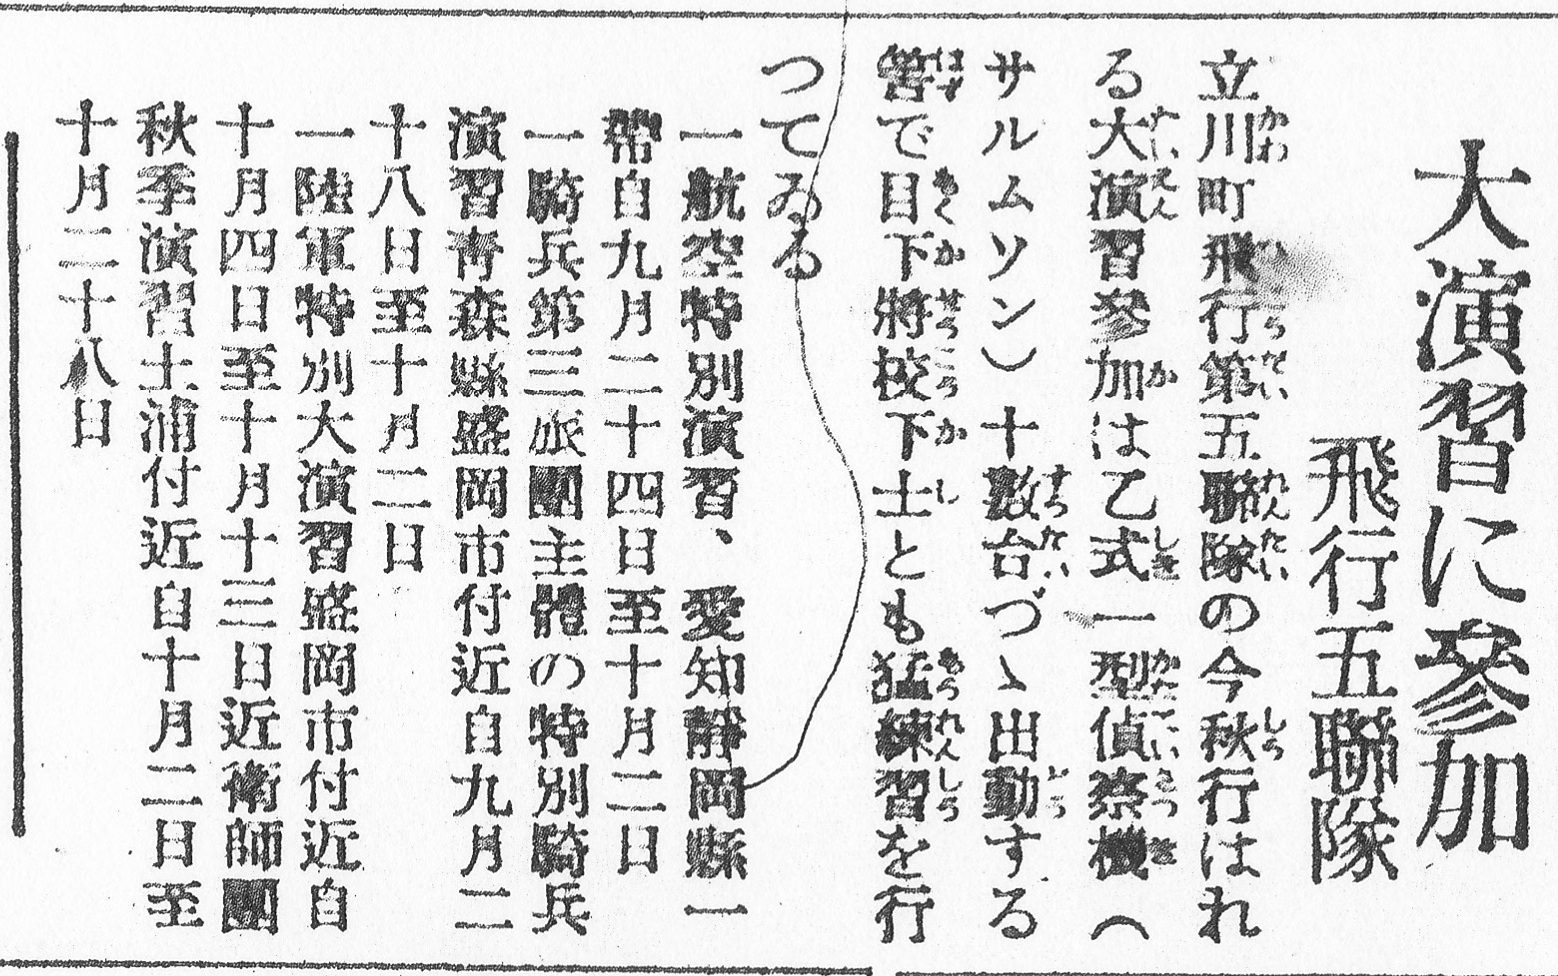 大演習に參加
飛行五聯隊
立川町飛行第五聯隊の今秋行はれ
る大演習參加は乙式一型偵察機（
サルムソン）十數台づゝ出動する
筈で目下將校下士とも猛練習を行
つてゐる
一航空特別演習、愛知靜岡縣一
帶自九月二十四日至十月二日
一騎兵第三旅團主體の特別騎兵
演習靑森縣盛岡市付近自九月二
十八日至十月二日
一陸軍特別大演習盛岡市付近自
十月四日至十月十三日近衞師團
秋季演習土浦付近自十月二日至
十月二十八日